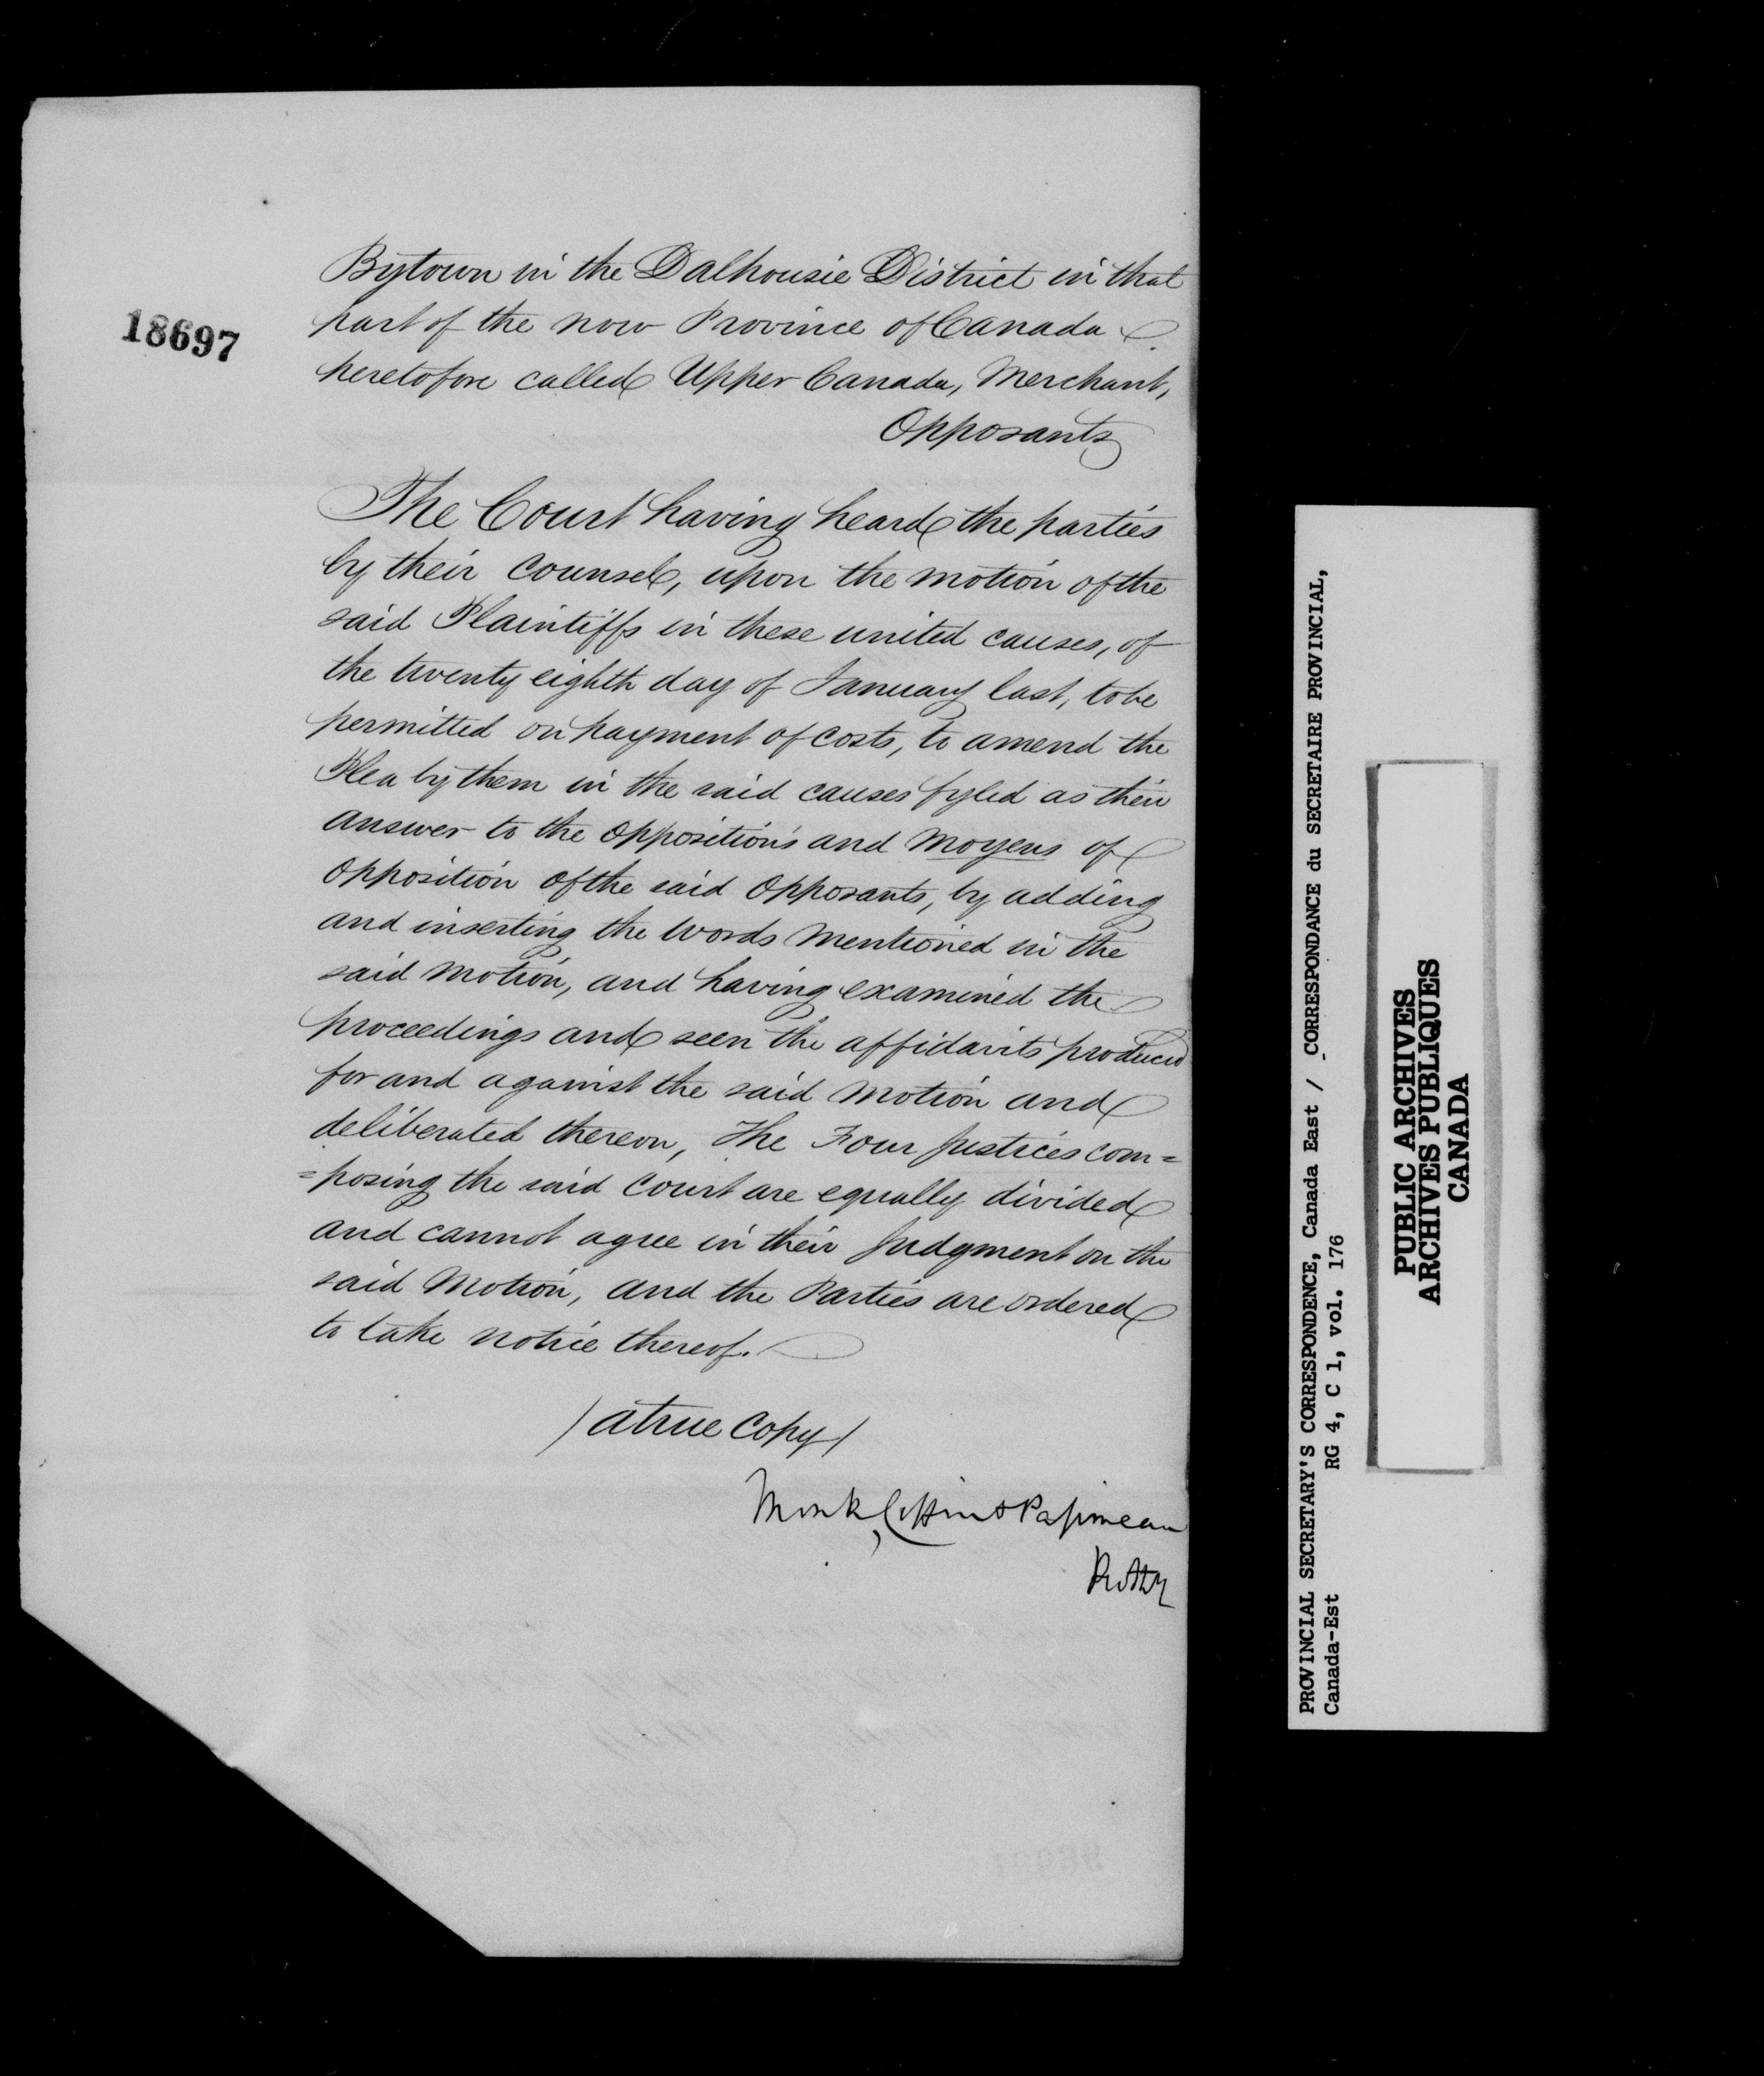 18697
Bytown in the Dalhousie District in that
part of the now Province of Canada
heretofore called Upper Canada, Merchant,
Opposants
The Court having heard the parties
by their Counsel, upon the motion of the
said Plaintiffs in these united causes, of
the twenty eighth day of January last, to be
permitted on payment of costs, to amend the
Plea by them in the said causes fyled as their
answer to the oppositions and moyens of
opposition of the said Opposants, by adding
and inserting the words mentioned in the
said motion, and having examined the
proceedings and seen the affidavits produced
for and against the said motion and
deliberated thereon, The Four Justices com=
=posing the said Court are equally divided
and cannot agree in their Judgment on the
said Motion, and the Parties are ordered
to take notice thereof.
/ a true Copy /
Monk Coffin & Papineau
PROVINCIAL SECRETARY'S CORRESPONDENCE, Canada East / CORRESPONDANCE du SECRETAIRE PROVINCIAL,
Canada-Est RG 4, C 1, vol. 176
PUBLIC ARCHIVES
ARCHIVES PUBLIQUES
CANADA